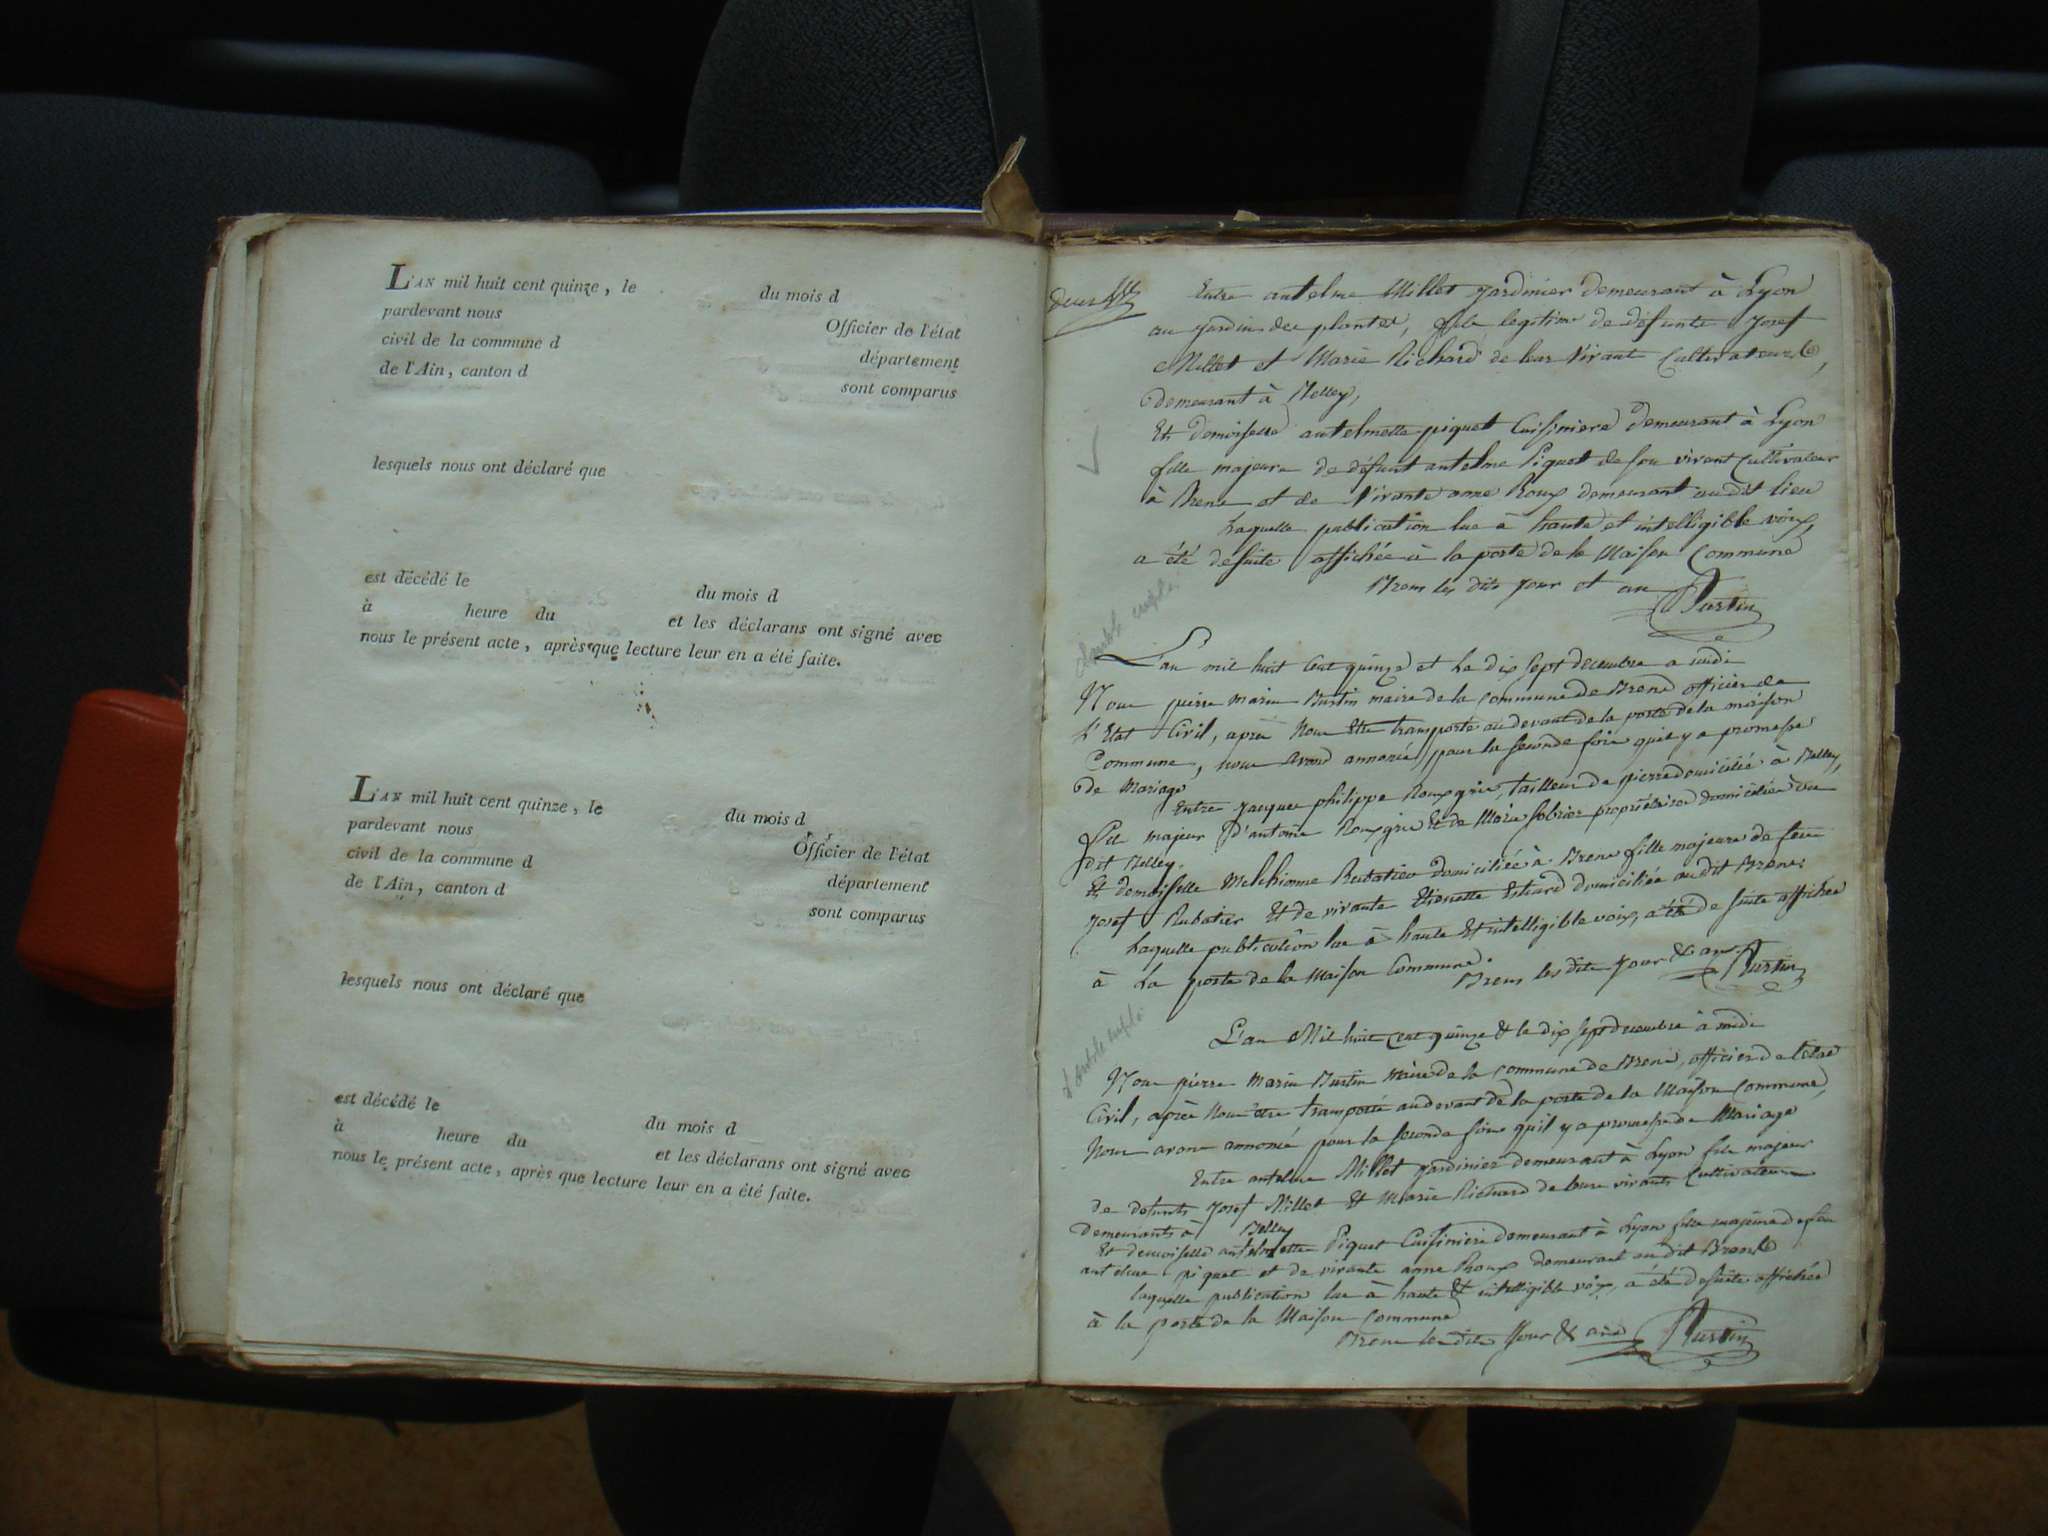 L'AN mil huit cent quinze, le du mois d
pardevant nous Officier de l'état
civil de la commune d département
de l'Ain, canton d sont comparus
lesquels nous ont déclaré que
est décédé le du mois d
à heure du et les déclarans ont signé avec
nous le présent acte, après que lecture leur en a été faite.
L'AN mil huit cent quinze, le du mois d
pardevant nous Officier de l'état
civil de la commune d département
de l'Ain, canton d sont comparus
lesquels nous ont déclaré que
est décédé le du mois d
à heure du et les déclarans ont signé avec
nous le présent acte, après que lecture leur en a été faite.
Entre antelme Millet jardinier demeurant à Lyon
au jardin des plantes, fils legitime de défunts Josef
Millet et Marie Richard de leur vivant Cultivateurs
demeurant à Belley,
Et demoiselle antelmette piquet Cuisiniere demeurant à Lyon
fille majeure de défunt antelme Piquet de son vivant Cultivateur
à Brens et de vivante anne Roux demeurant au dit lieu
Laquelle publication lue à haute et intelligible voix,
a été desuite affichée à la porte de la Maison Commune
Brens les dits jour et an Burtin
double emploi
L'an mil huit Cent quinze et Le dix sept decembre a midi
Nous pierre marie Burtin maire de la commune de Brens officier de
L'Etat Civil, après Nous Etre transporté au devant de la porte de la maison
Commune, nous avons annoncé pour la seconde fois quil y a promesse
de Mariage
Entre jacques philippe Rouxgrio, tailleur de pierre domicilié à Belley,
fils majeur d'antoine Rouxgrio Et de Marie propriétaires domiciliés au
dit Belley.
Et demoiselle Melchionne Rubatier domiciliée à Brens fille majeure de feu
Josef Rubatier Et de vivante Etienette domiciliée au dit Brens.
Laquelle publication lue à haute Et intelligible voix, a été de suite affichée
à La porte de la Maison Commune.
Brens les dits jour & an Burtin
double emploi
L'an Mil huit Cent quinze & le dix sept decembre à midi
Nous pierre Marie Burtin Maire de la commune de Brens, officier de l'état
Civil, après Nous être transporté au devant de la porte de la Maison Commune,
Nous avons annoncé pour la seconde fois qu'il y a promesse de Mariage
Entre antelme Millet jardinier demeurant à Lyon fils majeur
de defunts Josef Millet & Marie Richard de leurs vivants Cultivateurs
demeurants à Belley
Et demoiselle antelmette Piquet Cuisiniere demeurant à Lyon fille majeure de feu
antelme piquet et de vivante anne Roux demeurant au dit Brens
laquelle publication lue à haute & intelligible voix, a été desuite affichée
à la porte de la Maison Commune
Brens les dits jour & an Burtin